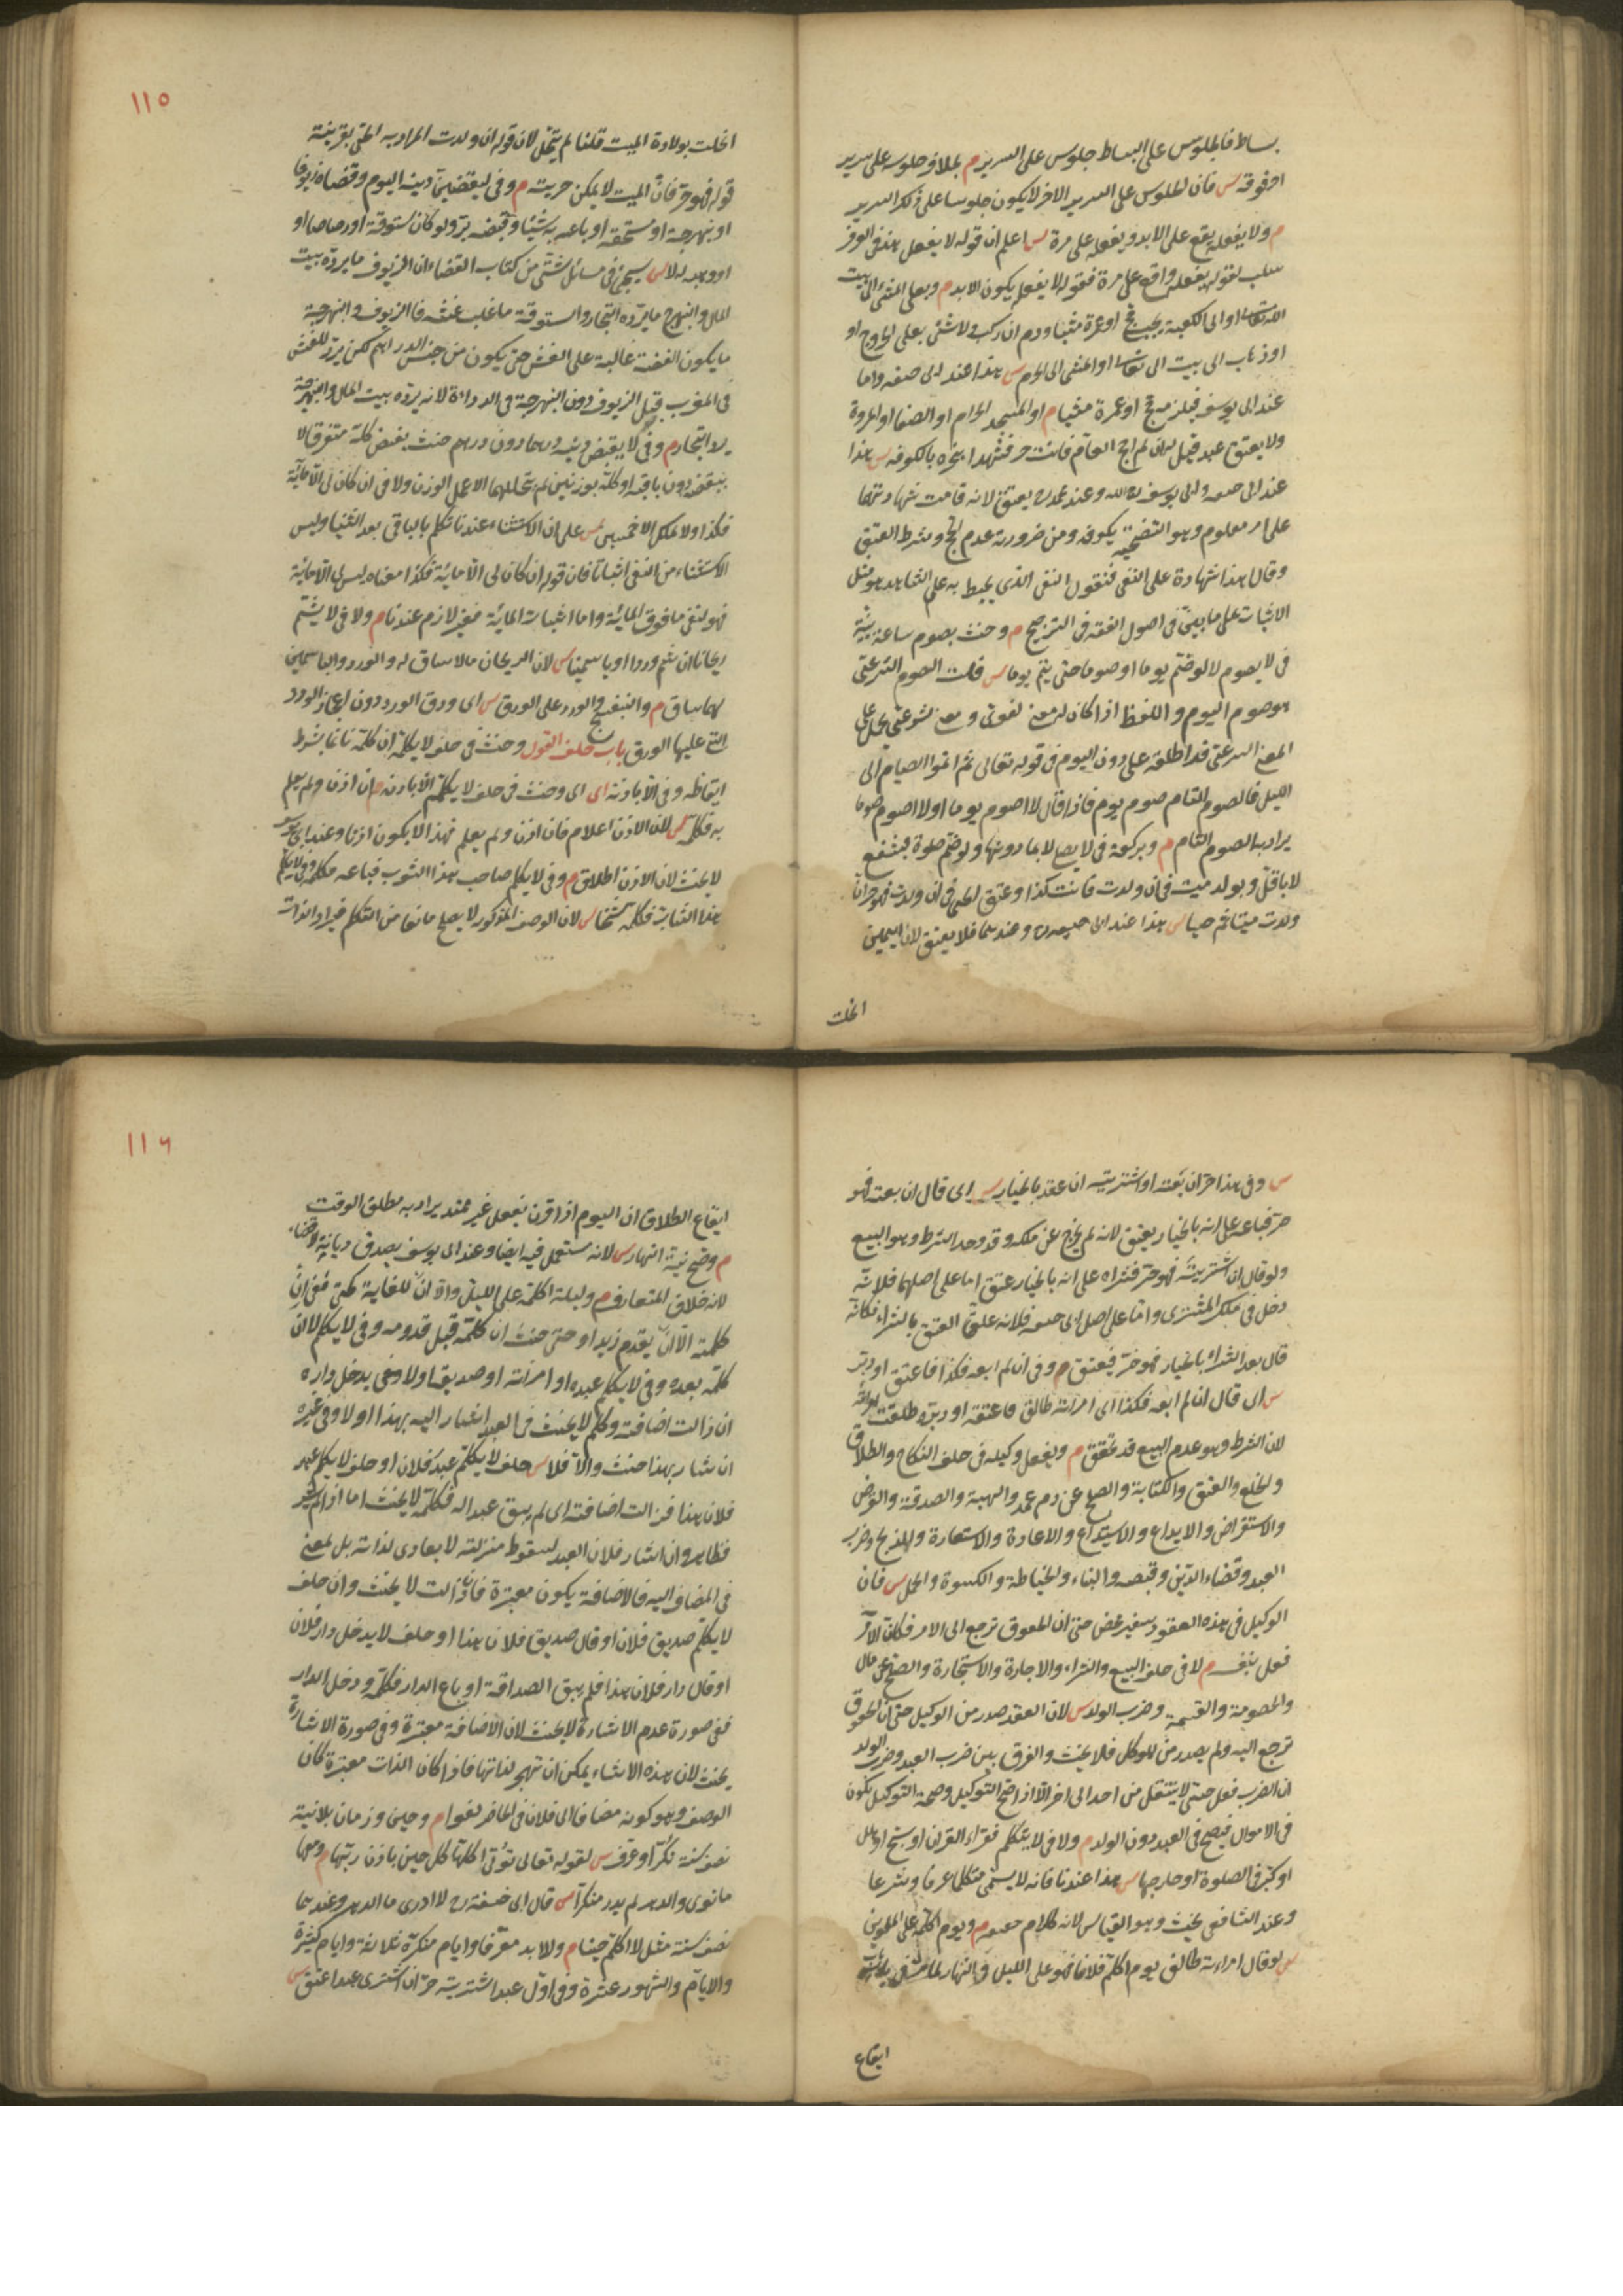 بساط فالجلوس على البساط جلوس على السرير م بخلاف جلوسه على سرير
اخر فوقه س فان الجلوس على السرير الاخر لا يكون جلوسا على ذلك السرير
م ولا يفعله يقع على الابد ويفعله على مرة س اعلم ان قوله لا يفعل هذا فى العرف
سلب لقوله يفعله واقع على مرة فقوله لا يفعله يكون للابد م وبعلى المشى الى بيت
الله تعالى او الى الكعبة يجب حج او عمرة مشيا ودم ان ركب ولا شئ بعلى الخروج او
او ذهاب الى بيت الله تعالى او المشى الى الحرم س هذا عند ابى حنيفة واما
عند ابى يوسف فيلزمه حج او عمرة مشيا م او المسجد الحرام او الصفا او المروة
ولا يعتق عبد قيل له ان لم احج العام فانت حر فشهدا بنحره بالكوفه س هذا
عند ابى حنيفة وابى يوسف رحمهما الله وعند محمد رح يعتق لانه قامت شهادتهما
على امر معلوم وهو التضحية بكوفه ومن ضرورته عدم الحج وشرط العتق
وقالا هذا شهادة على النفى فنقول النفى الذى يحيط به علم الشاهد هو مثل
الاثبات على ما يجئ فى اصول الفقه فى الترجيح م وحنث بصوم ساعة بنية
فى لا يصوم لا لو ضم يوما او صوما حتى يتم يوما س قلت الصوم الشرعى
هو صوم اليوم واللفظ اذا كان له معنى لغوى ومعنى شرعى يحمل على
المعنى الشرعى قد اطلقه على دون اليوم فى قوله تعالى ثم اتموا الصيام الى
الليل فالصوم التام صوم يوم فاذا قال لا اصوم يوما او لا اصوم صوما
يراد به الصوم التام م وبركعة فى لا يصلى لا بما دونها ولو ضم صلوة فبشفع
لا باقل وبولد ميت فى ان ولدت فانت كذا وعتق الحى فى ان ولدت فهو حر ان
ولدت ميتا ثم حيا س هذا عند ابى حنيفة رح وعندهما فلا يعتق لان اليمين
انحلت
١١٥
انحلت بولادة الميت قلنا لم ينحل لان قوله ان ولدت المراد به الحى بقرينة
قوله فهو حر فان الميت لا يمكن حريته م وفى ليقضين دينه اليوم وقضاه زيوفا
او بنهرجة او مستحقة او باعه به شيئا وقبضه بر ولو كان ستوقة او رصاصا او
او وهبه له لا س سيجئ فى مسائل شتى من كتاب القضاء ان الزيوف ما يرده بيت
المال والبنهرج ما يرده التجار والستوقة ما غلب غشه فالزيوف والنبهرجة
ما يكون الفضة غالبة على الغش حتى يكون من جنس الدراهم لكن يرد للغش
فى المغرب قيل الزيوف دون النبهرجة فى الرداءة لانه يرده بيت المال والنبهرجة
يرد التجار م وفى لا يقبض دينه درهما دون درهم حنث بقبض كله متفرقا لا
ببعضه دون باقيه او كله بوزنين لم يتخللهما الا عمل الوزن ولا فى ان كان لى الا مائة
فكذا ولا يملك الا خمسين س على ان الاستثناء عندنا تكلم بالباقى بعد الثنيا وليس
الاستثناء من النفى اثباتا فان قوله ان كان لى الا مائة فكذا معناه ليس لى الا مائة
فهو لنفى ما فوق المائة واما اثبات المائة فغير لازم عندنا م ولا فى لا يشم
ريحانا ان شم وردا او ياسمينا س لان الريحان ما لا ساق له والورد والياسمين
لهما ساق م والبنفسج والورد على الورق س اى ورق الورد دون اعجاز الورد
التى عليها الورق باب حلف القول وحنث فى حلف لا يكلمه ان كلمه نائما بشرط
ايقاظه وفى الا باذنه اى اى وحنث فى حلف لا يكلمه الا باذنه م ان اذن ولم يعلم
به فكلمه س لان الاذن اعلام فان اذن ولم يعلم فهذا لا يكون اذنا وعند ابى يوسف
لا يحنث لان الاذن اطلاق م وفى لا يكلم صاحب هذا الثوب فباعه فكلمه وفى لا يكلم
هذا الشاب فكلمه شيخا س لان الوصف المذكور لا يصلح مانعا من التكلم فيراد الذات
س وفى هذا حر ان بعته او اشتريته ان عقد بالخيار س اى قال ان بعته فهو
حر فباعه على انه بالخيار يعتق لانه لم يخرج عن ملكه وقد وجد الشرط وهو البيع
ولو قال ان اشتريته فهو حر فشراه على انه بالخيار عتق اما على اصلهما فلانه
دخل فى ملك المشترى واما على اصل ابى حنيفة فلانه علق العتق بالشراء فكانه
قال بعد الشراء بالخيار فهو حر فيعتق م وفى ان لم ابعه فكذا فاعتق او دبر
س اى قال ان لم ابعه فكذا اى امرأته طالق فاعتقه او دبره طلقت امرأته
لان الشرط وهو عدم البيع قد تحقق م وبفعل وكيله فى حلف النكاح والطلاق
والخلع والعتق والكتابة والصلح عن دم عمد والهبة والصدقة والقرض
والاستقراض والايداع والاستيداع والاعارة والاستعارة والذبح وضرب
العبد وقضاء الدين وقبضه والبناء والخياطة والكسوة والحمل س فان
الوكيل فى هذه العقود سفير محض حتى ان الحقوق ترجع الى الامر فكان الآمر
فعل بنفسه م لا فى حلف البيع والشراء والاجارة والاستجارة والصلح عن مال
والخصومة والقسمة وضرب الولد س لان العقد صدر من الوكيل حتى ان الحقوق
ترجع اليه ولم يصدر من الموكل فلا يحنث والفرق بين ضرب العبد وضرب الولد
ان الضرب فعل حسى لا ينتقل من احد الى اخر الا اذا صح التوكيل وصحة التوكيل تكون
فى الاموال فيصح فى العبد دون الولد م ولا فى لا يتكلم فقراء القران او سبح او هلل
او كبر فى الصلوة او خارجها س هذا عندنا فانه لا يسمى متكلما عرفا وشرعا
وعند الشافعى يحنث وهو القياس لانه كلام حقيقة م ويوم اكلمه على الملوين
س لو قال امراءته طالق يوم اكلم فلانا فهو على الليل والنهار لما مر فى
ايقاع
١١٦
ايقاع الطلاق ان اليوم اذا قرن بفعل غير ممتد يراد به مطلق الوقت
م وصح نية النهار س لانه مستعمل فيه ايضا وعند ابى يوسف يصدق ديانة لا قضاء
لانه خلاف المتعارف م وليلة اكلمه على الليل والا ان للغاية كحتى ففى ان
كلمته الا ان يقدم زيد او حتى حنث ان كلمه قبل قدومه وفى لا يكلم لا ان
كلمه بعده وفى لا يكلم عبده او امرأته او صديقه او لا يدخل داره
ان زالت اضافته وكلم لا يحنث فى العبد اشار اليه بهذا او لا وفى غيره
ان اشار بهذا حنث والا فلا س حلف لا يكلم عبد فلان او حلف لا يكلم عبد
فلان هذا فزالت اضافته اى لم يبق عبدا له فكلمه لا يحنث اما اذا لم يشر
فظاهر وان اشار فلان العبد لسقوط منزلته لا يعادى لذاته بل لمعنى
فى المضاف اليه فالاضافة يكون معتبرة فاذا زالت لا يحنث وان حلف
لا يكلم صديق فلان او قال صديق فلان هذا او حلف لا يدخل دار فلان
او قال دار فلان هذا فلم يبق الصداقة او باع الدار فكلمه ودخل الدار
ففى صورة عدم الاشارة لا يحنث لان الاضافة معتبرة وفى صورة الاشارة
يحنث لان هذه الاشياء يمكن ان تهجر لذاتها فاذا كان الذات معتبرة كان
الوصف وهو كونه مضافا الى فلان فى الحاضر لغوا م وحين وزمان بلا نية
نصف سنة نكر او عرف س لقوله تعالى تؤتى اكلها كل حين باذن ربها م ومعها
ما نوى والدهر لم يدر منكرا س قال ابى حنيفة رح لا ادرى ما الدهر وعندهما
نصف سنة مثل لا اكلمه حينا م وللابد معرفا وايام منكرة ثلاثة وايام كثيرة
والايام والشهور عشرة وفى اول عبد اشتريته حر ان اشترى عبدا عتق س